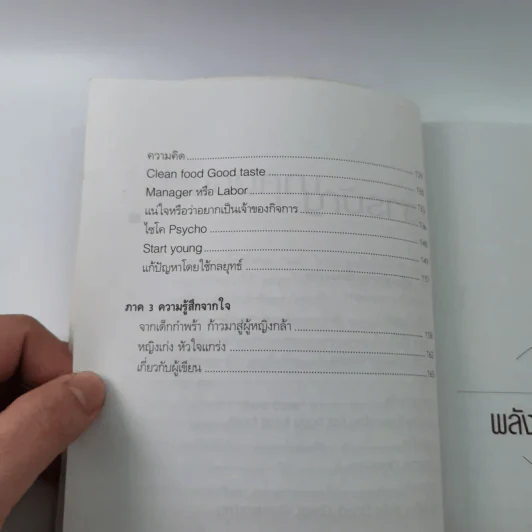 ความคิด
Clean food Good taste
Manager หรือ Labor
แน่ใจหรือว่าอยากเป็นเจ้าของกิจการ
ไซโค Psycho
Start young
แก้ปัญหาโดยใช้กลยุทธ์
ภาค 3 ความรู้สึกจากใจ
จากเด็กกำพร้า ก้าวมาสู่ผู้หญิงกล้า
หญิงเก่ง หัวใจแกร่ง
เกี่ยวกับผู้เขียน
พลัง